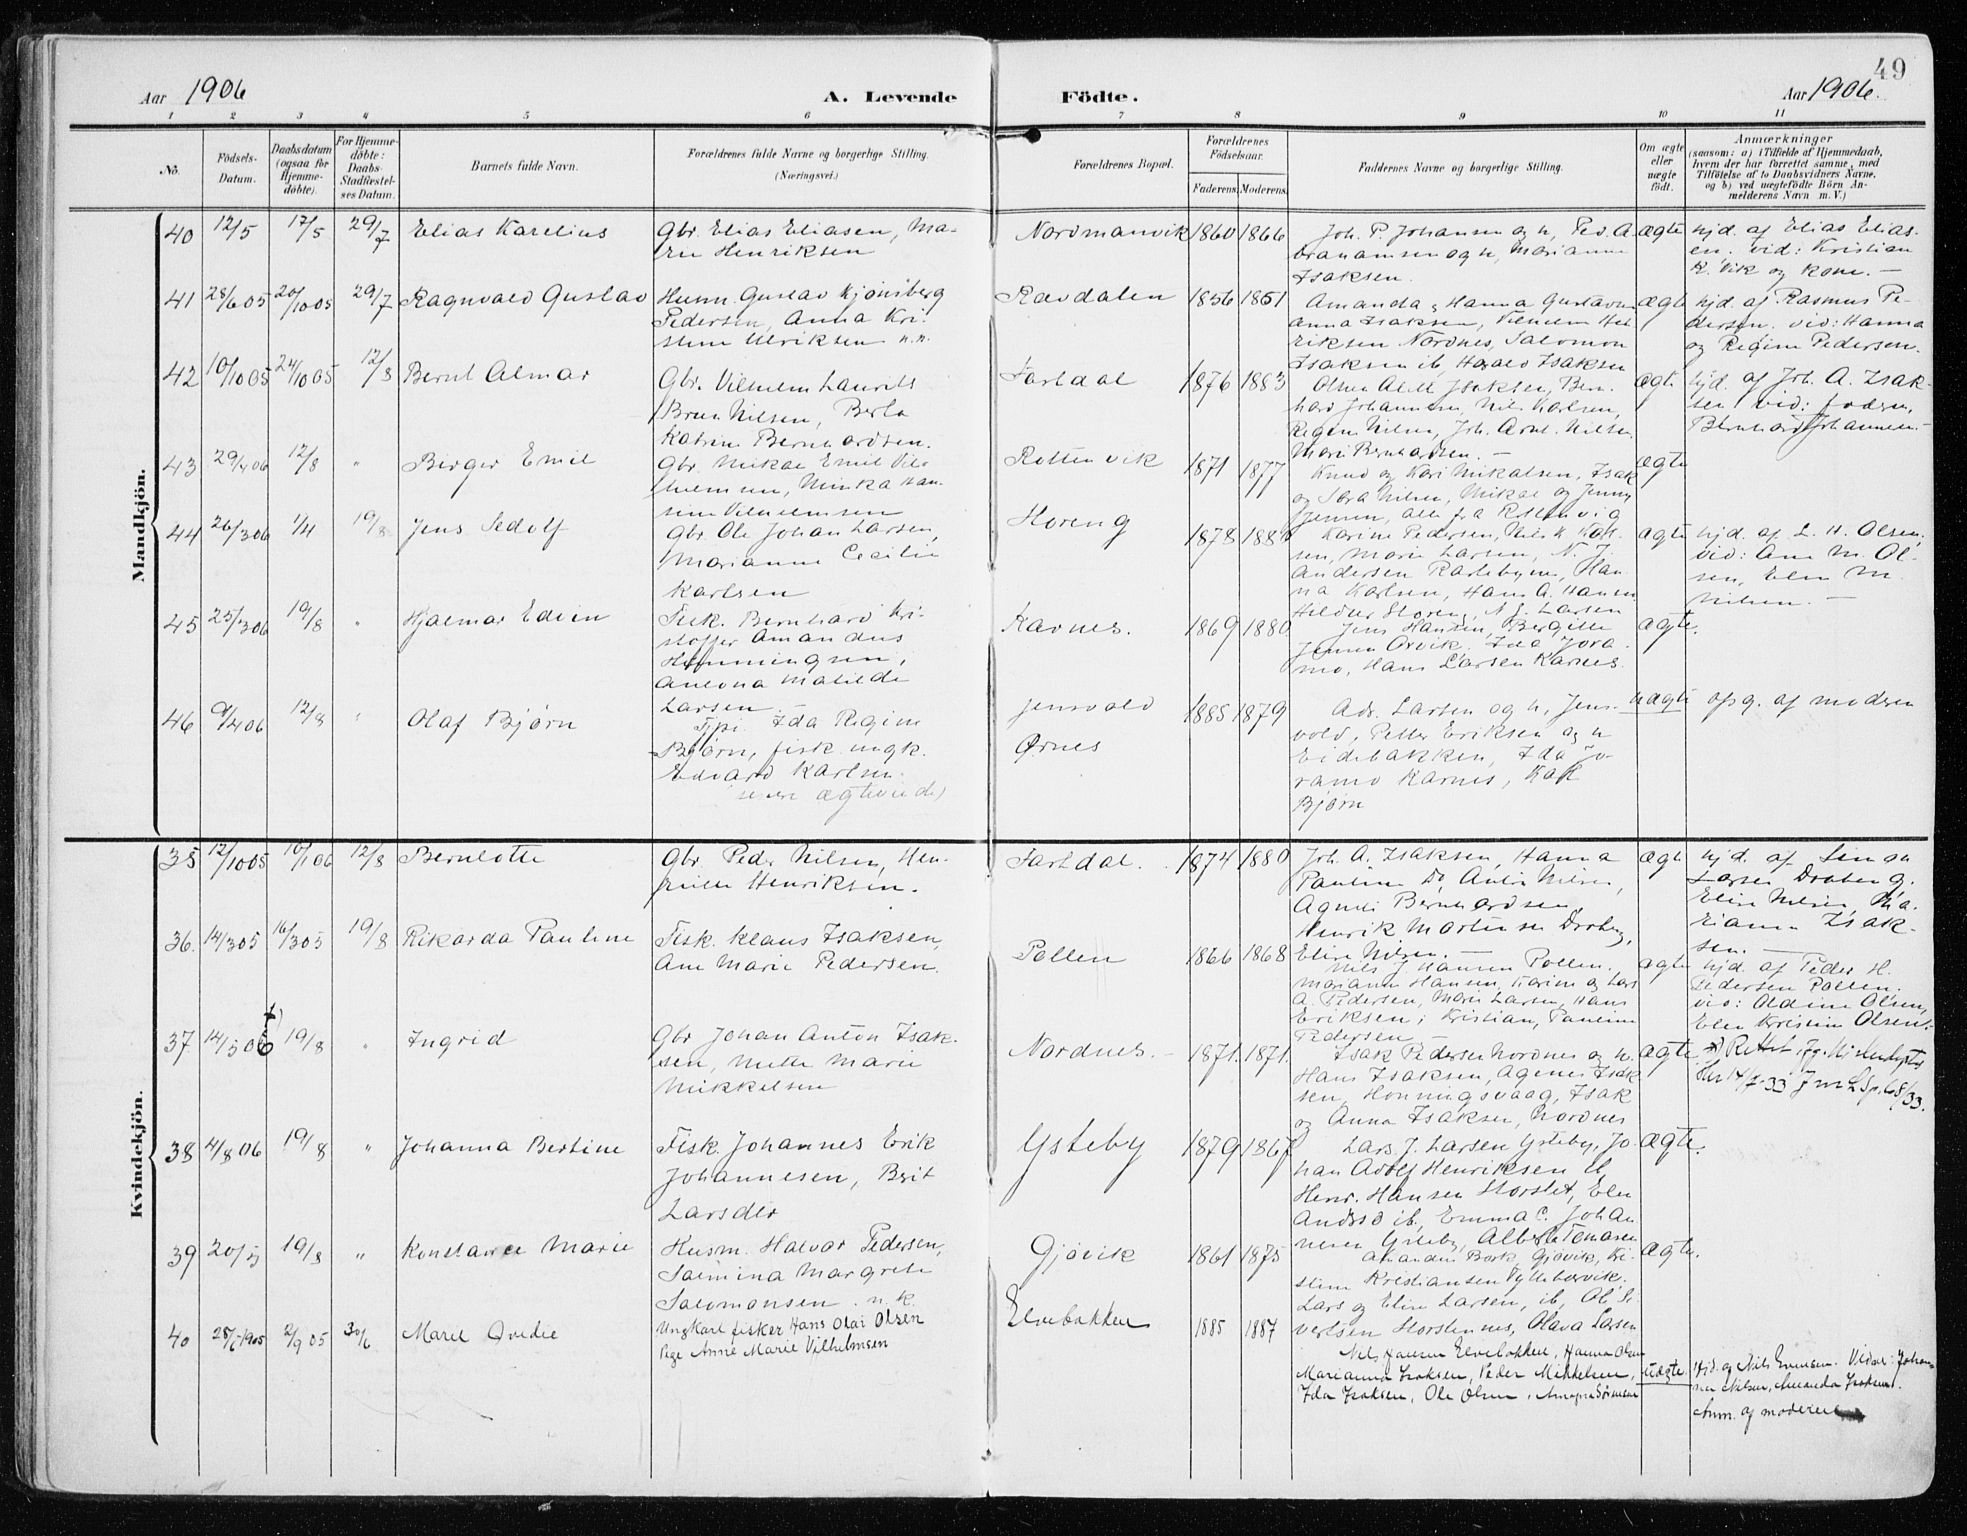 49
Aar 1906
A. Levende Födte.
Aar 1906.
1 2 3 4 5 6 7 8 9 10 11
No.
Födsels-Datum.
Daabsdatum (ogsaa for Hjemme-døbte).
For Hjemme-døbte: Daabs-Stadfæstel-ses Datum.
Barnets fulde Navn.
Forældrenes fulde Navne og borgerlige Stilling.
(Næringsvei.)
Forældrenes Bopæl.
Forældrenes Födselsaar.
Faderens. Moderens.
Faddernes Navne og borgerlige Stilling.
Om ægte eller uægte födt.
Anmærkninger
(saasom: a) i Tilfælde af Hjemmedaab,
hvem der har forrettet samme, med
Tilföielse af to Daabsvidners Navne,
og b) ved uægtefödte Börn An-
melderens Navn m. V.)
Mandkjön.
40 12/5 17/5 29/7 Elias Karelius
Gbr. Elias Eliasen, Ma-
rie Henriksen
Nordmanvik 1860 1866
Joh. P. Johansen og h, Ped. A-
brahamsen og h, Marianne
Isaksen.
ægte
hjd. af Elias Elias-
en, vid: Kristian
K. Vik og kone. —
41 28/6 05 20/10 05 29/7 Ragnvald Gustav
Husm. Gustav Kjönsberg
Pedersen, Anna Kri-
stine Ulriksen n.n.
Rævdalen 1856 1861
Amanda, Hanna Gustavsen
Anna Isaksen, Vilhelm Hen-
riksen Nordnes, Salomon
Isaksen ib, Harald Isaksen
ægte
hjd. af Rasmus Pe-
dersen. vid: Hanna
og Regine Pedersen.
42 10/10 05 24/10 05 12/8 Bernt Almar
Gbr. Vilhelm Laurits
Brun Nilsen, Berta
Katrine Bernhardsen.
Fartdal 1876 1883
Olsen Abell Isaksen, Bern-
hard Johannesen, Nils Karlsen,
Regine Nilsen, Joh. Arnt. Nilsen
Mari Bernhardsen. —
ægte
hjd. af Joh. A. Isak-
sen vid: fadren,
Bernhard Johannesen —
43 29/4 06 12/8 " Birger Emil
Gbr. Mikal Emil Vil-
helmsen, Minka Han-
sine Vilhelmsen
Rottenvik 1871 1877
Knud og Kari Mikalsen, Isak
og Sara Nilsen, Mikal og Jenny
Jensen, alle fra Rottenvig
ægte
44 26/3 06 1/4 19/8 Jens Sedolf
Gbr. Ole Johan Larsen,
Marianne Cecilie
Karlsen
Horeng 1878 188
Karine Pedersen, Nils K Karl-
sen, Marie Larsen, N. J.
Andersen Karlebyen, Han-
na Karlsen, Hans A. Hansen
Hildur Storeng, N. J. Larsen
ægte
hjd. af L. H. Olsen,
vid: Ane M. Ol-
sen, Elen M.
Nilsen. —
45 25/3 06 19/8 " Hjalmar Edvin
Fisk. Bernhard Kri-
stoffer Amandus
Hemmingsen,
Antona Matilde
Larsen
Karnes. 1869 1880
Jens Hansen, Bergitte
Jensen Arvik. Ida Jora-
mo, Hans Larsen Karnes.
ægte.
46 9/4 06 12/8 " Olaf Bjørn
Tjpi. Ida Regine
Bjørn, fisk. ungk.
Edvard Karlsen.
senere ægteviede)
Jensvold
Ørnes
1885 1879
Adr. Larsen og h, Jens-
vold, Petter Eriksen og h
Eidebakken, Ida Jo-
ramo Karnes, Karl
Bjørn
uægte
opg. af moderen
Kvindekjön.
35 12/10 05 10/1 06 12/8 Berntotte
Gbr. Peder Nilsen, Hen-
riette Henriksen.
Fartdal. 1874 1880
Joh. A. Isaksen, Hanna
Pauline Do, Antin Nilsen,
Agnes Bernhardsen,
Henrik Mortensen Draberg,
Eline Nilsen. —
ægte
hjd. af Simon
Larsen Draberg.
Eline Nilsen, Ma-
rianne Isak-
sen. —
36. 14/3 05 16/3 05 19/8 Rikarda Pauline
Fisk. Klaus Isaksen,
Ane Marie Pedersen
Pollen 1866 1868
Nils J. Hansen Pollen.
Marianne Hansen, Karine og Lars
A. Pedersen, Marie Larsen, Hans
Eriksen, Kristian, Pauline
Pedersen —
ægte
hjd. af Peder H.
Pedersen Pollen.
vid: Aldine Olsen,
Elen Kristine Olsen.
37 14/5 06 x) 19/8 " Ingrid
Gbr Johan Anton Isak-
sen, Mette Marie
Mikkelsen
Nordnes. — 1871. 1871.
Isak Pedersen Nordnes og h.
Hans Isaksen, Agenes Isak-
sen, Honningsvaag, Isak
og Anna Isaksen, Nordnes
ægte
x) Rettet
38 4/8 06 19/8 " Johanna Bertine
Fisk. Johannes Erik
Johannesen, Brit
Larsdtr
Ysteby 1879 1867
Lars J. Larsen Ysteby, Jo-
han Adolf Henriksen ib,
Henr. Hansen Storslet, Elen
Andrsd ib, Emma C. Johan-
nesen Ysteby, Albert Tomasen
ægte.
39 20/5 19/8 " Konstance Marie
Husm. Halvor Pedersen,
Salmina Margrete
Salomonsen. n.k.
Gjövik 1861 1875
Akandin Bork Gjövik, Kri-
stine Kristiansen Ytteborvik,
Lars og Eline Larsen, ib, Ol. Si-
vertsen Storstennes, Olava Larsen
ægte.
40 28/ 1905 2/9 05 30/6 Marel Ovedie
Ungkarl fisker Hans Olai Olsen
Pige Anne Marie Vilhelmsen
Elvebakken 1885 1887
Nils Hansen Elvebakken, Hanna Olsen
Marianna Isaksen, Peder Mikkelsen,
Ida Isaksen, Ole Olsen,
Uægte
Hjd. af Nils Evensen. Vidne: Johan-
na Nilsen, Amanda Isaksen.
Anm. af moderen